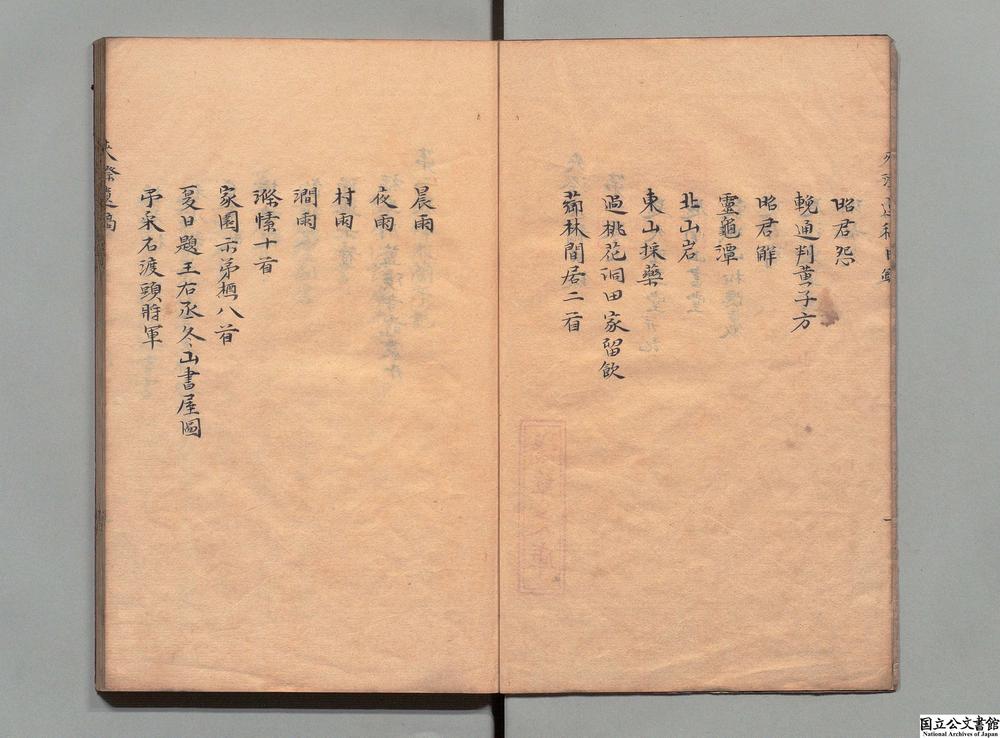 昭君怨
輓通判黄子方
昭君解
靈龜潭
北山岩
東山採藥
過桃花洞田家留飲
薌林間居二首
晨雨
夜雨
村雨
澗雨
滌愫十首
家園示弟槱八首
夏日題王右丞冬山書屋圖
弔采石渡頭將軍
夾漈遺稿
国立公文書館
National Archives of Japan